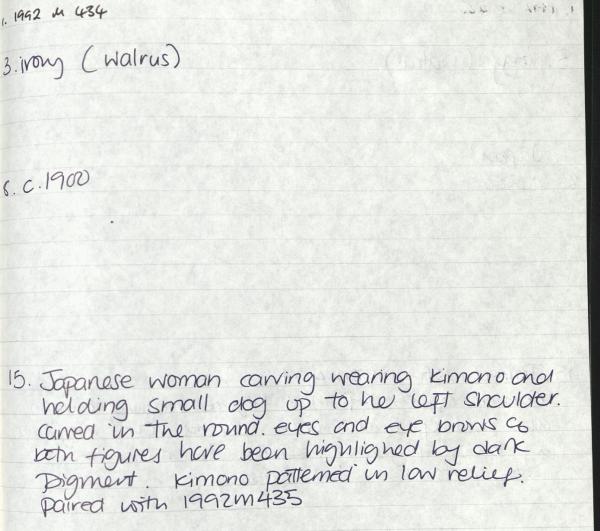 1. 1992 M 434
3. ivory (walrus)
8. c.1900
15. Japanese woman carving wearing kimono and
holding small dog up to he left shoulder.
carved in the round. eyes and eye brows
both figures have been highlighed by dark
pigment. kimono patterned in low relief.
Paired with 1992M435